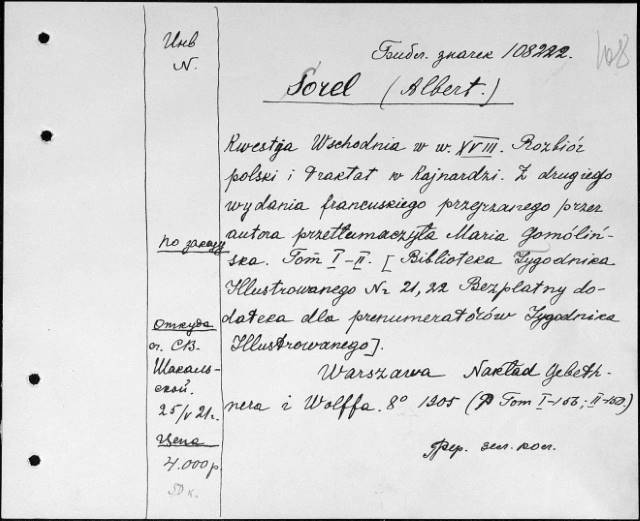 Инв
N.
Библ. значек 108222.
108
Sorel (Albert.)
Kwestja Wschodnia w w. XVIII. Rozbiór
polski i Traktat w Kajnardzi. Z drugiego
wydania francuskiego przejrzanego przez
autora przetłumaczyła Maria Gomóliń-
ska. Tom I-II. [Biblioteka Tygodnika
Illustrowanego Nr 21, 22 Bezpłatny do-
datek dla prenumeratorów Tygodnika
Illustrowanego].
Warszawa Nakład Gebeth-
nera i Wolffa. 8° 1905 (Tom I-156; II-160)
зел. кол.
по заказу
Откуда
от СВ.
Шакаль-
ской.
25/V 21г.
Цена
4.000р.
50 к.